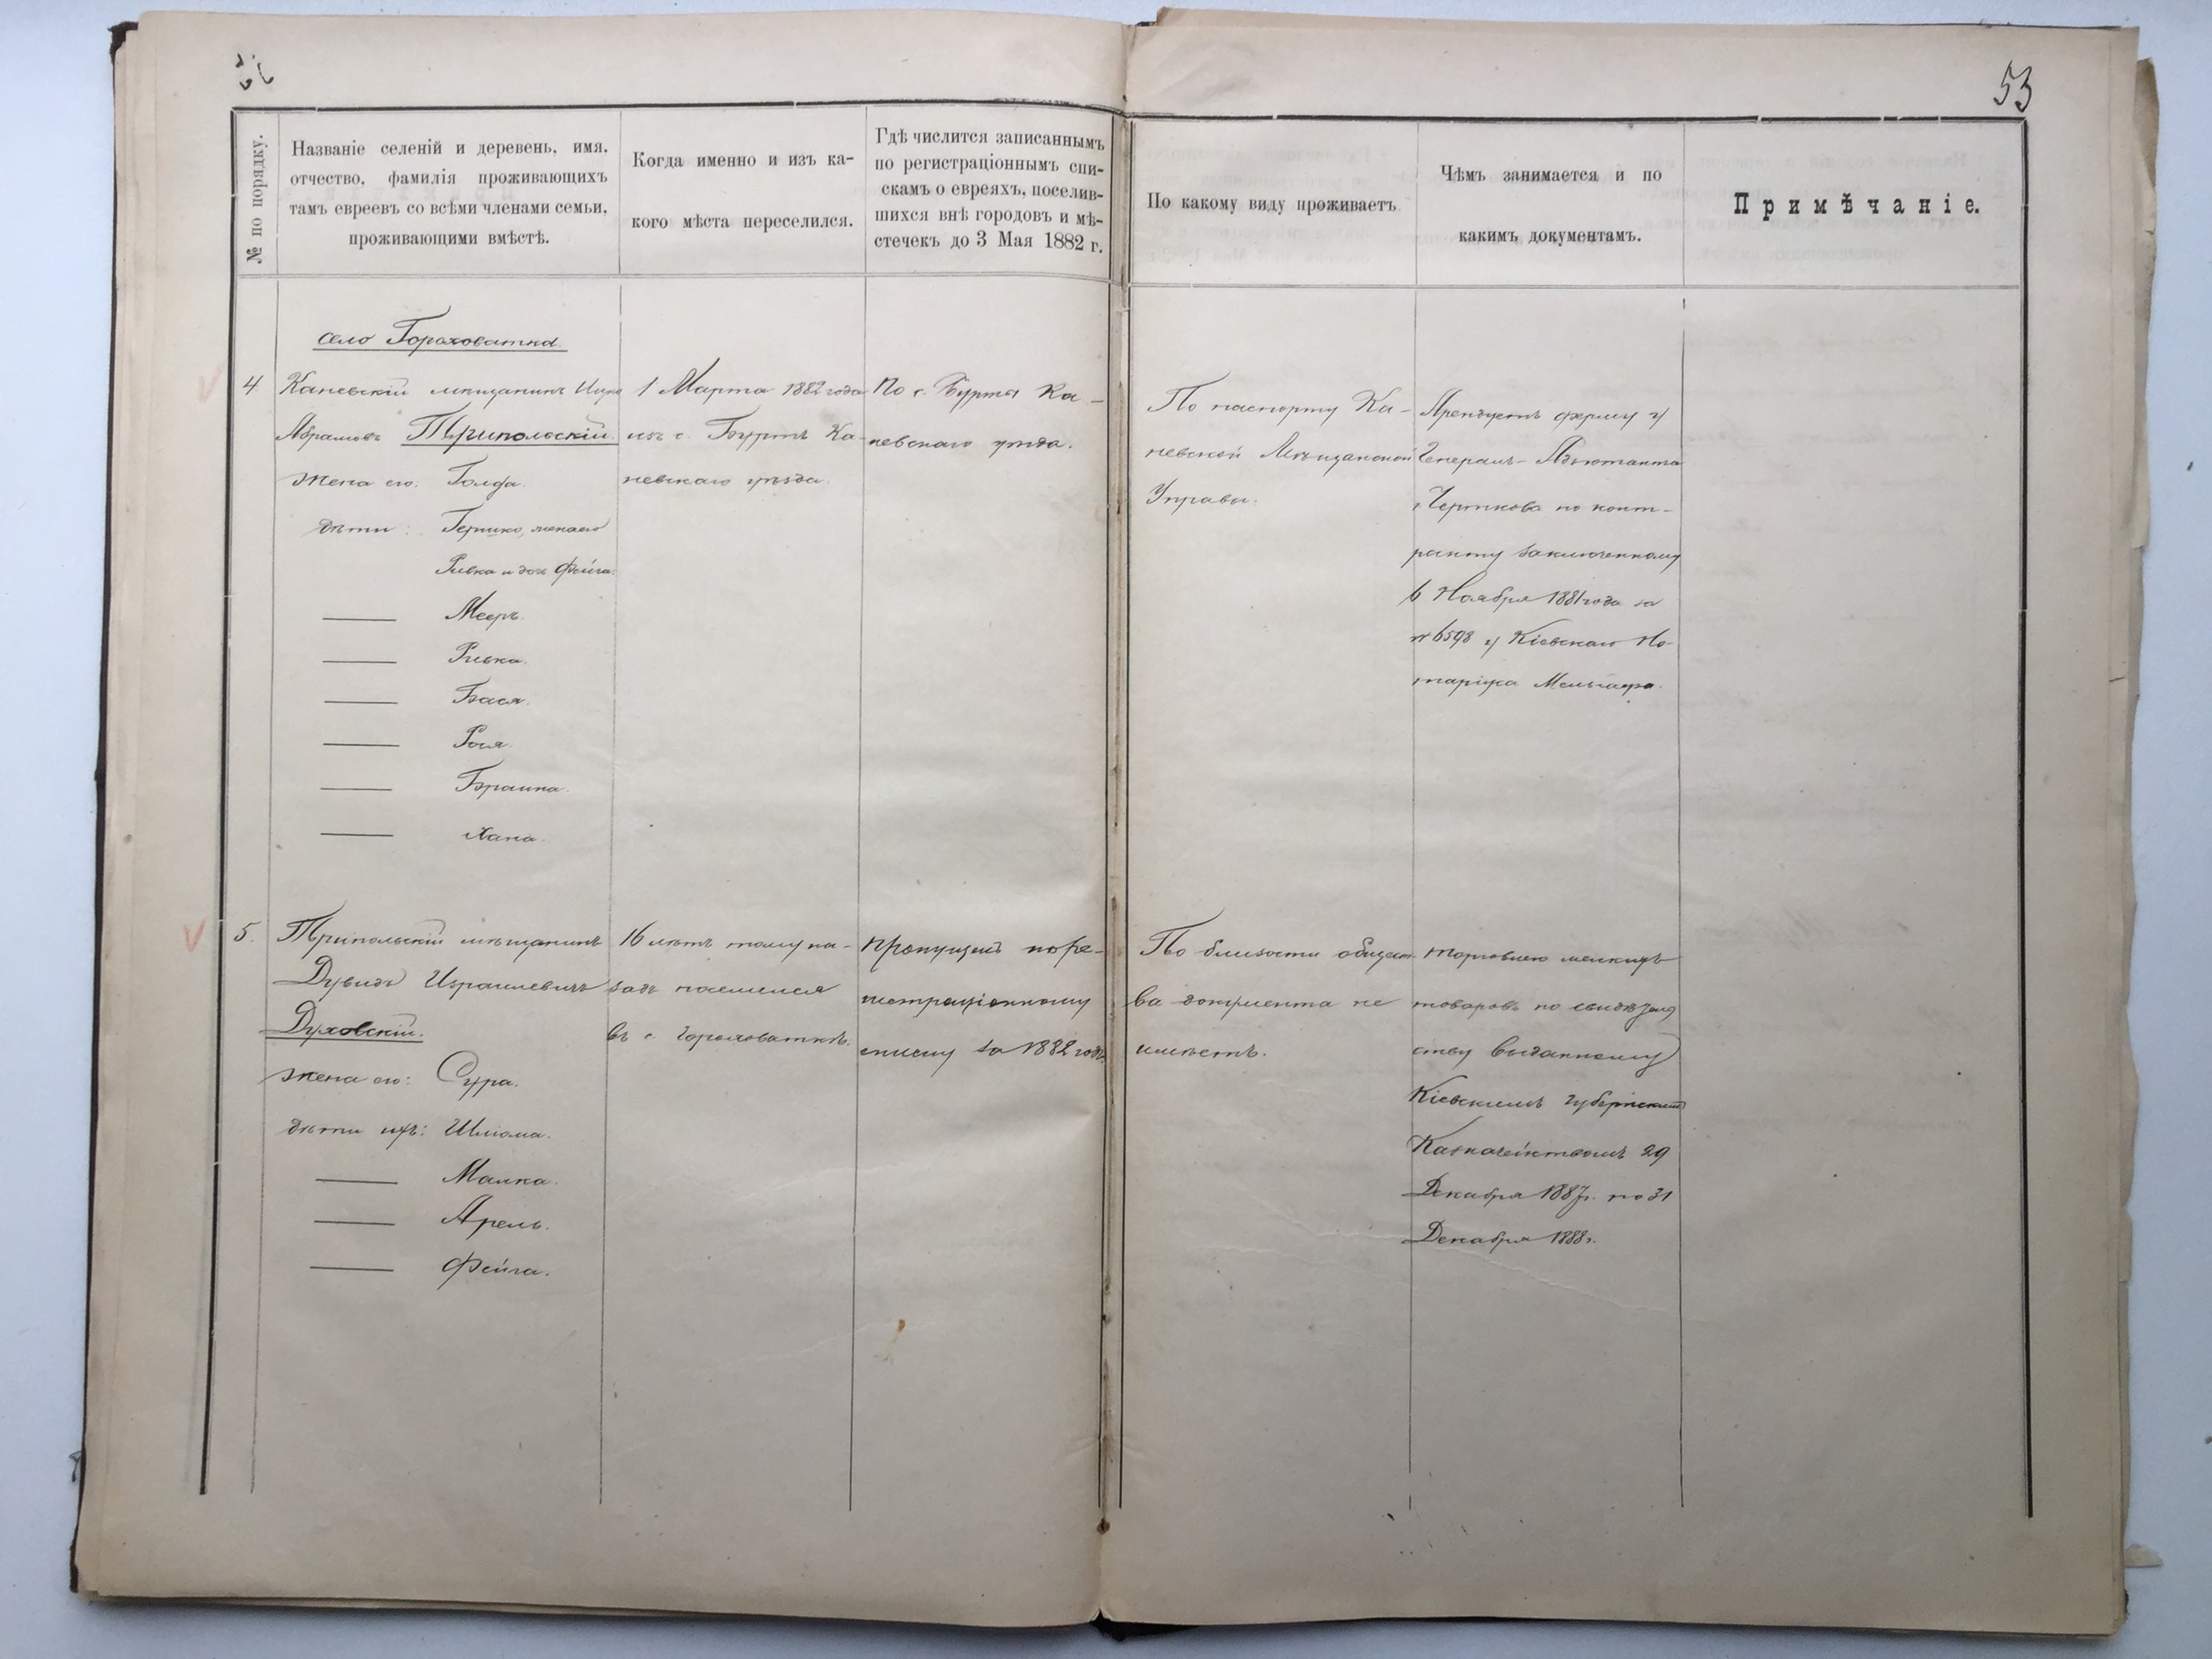 53
№ по порядку.
Названіе селеній и деревень, имя,
отчество, фамилія проживающихъ
тамъ евреевъ со всѣми членами семьи,
проживающими вмѣстѣ.
Когда именно и изъ ка-
кого мѣста переселился.
Гдѣ числится записаннымъ
по регистраціоннымъ спи-
скамъ о евреяхъ, поселив-
шихся внѣ городовъ и мѣ-
стечекъ до 3 Мая 1882 г.
По какому виду проживаетъ
Чѣмъ занимается и по
какимъ документамъ.
Примѣчаніе.
село Гороховатка
4
Каневскій мѣщанинъ Ицко
Абрамовъ Трипольскій
жена его: Голда.
дѣти: Гершко, жена его
Ривка и дочь Фейга.
Мееръ.
Ривка.
Бася.
Рося.
Браина.
Хана.
1 Марта 1882 года
изъ с. Буртъ Ка-
невскаго уѣзда.
По с. Бурты Ка-
невскаго уѣзда.
По паспорту Ка-
невской Мѣщанской
Управы.
Арендуетъ ферму у
Генералъ-Адъютанта
Черткова по конт-
ракту заключенному
6 Ноября 1881 года за
№ 6598 у Кіевскаго Но-
таріуса
5.
Трипольскій мѣщанинъ
Дувидъ Израилевичъ
Духовскій.
жена его: Сура.
дѣти ихъ: Шлома.
Малка.
Арель.
Фейга.
16 лѣтъ тому на-
задъ поселился
въ с. Гороховаткѣ.
Пропущенъ по ре-
гистраціонному
списку за 1882 годъ
По близости общест-
ва документа не
имѣетъ.
торговлею мелкихъ
товаровъ по свидѣтель
ству выданному
Кіевскимъ Губернским
Казначействомъ 29
Декабря 1887 г. по 31
Декабря 1888 г.